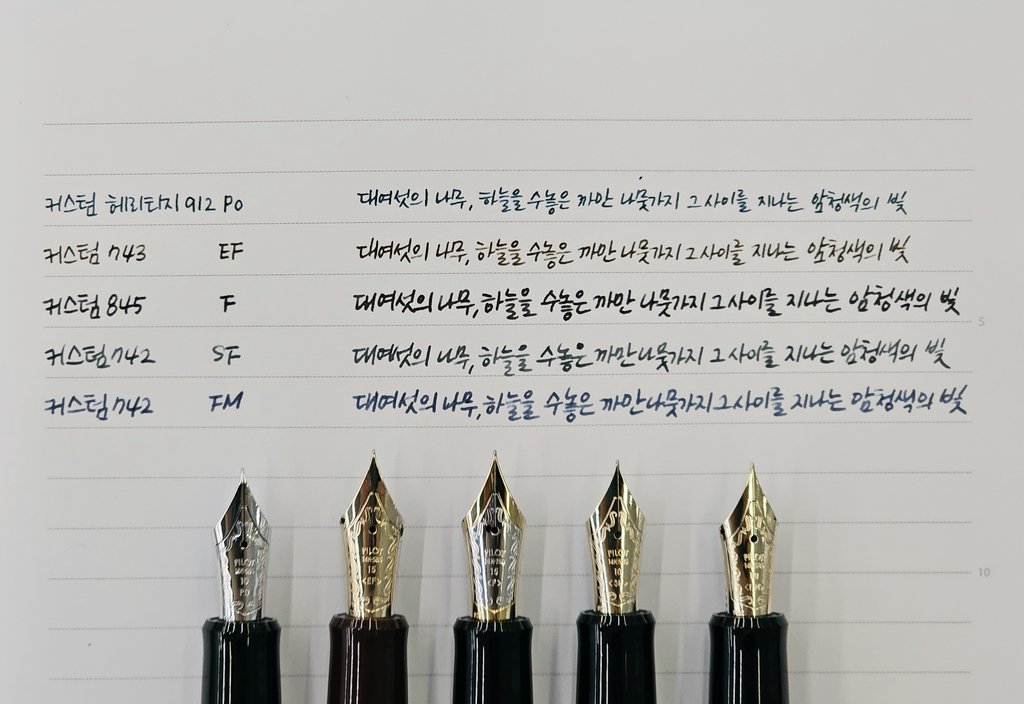 커스텀 헤리타지 912 PO 대여섯의 나무, 하늘을 수놓은 까만 나뭇가지 그 사이를 지나는 암청색의 빛
커스텀 743 EF 대여섯의 나무, 하늘을 수놓은 까만 나뭇가지 그 사이를 지나는 암청색의 빛
커스텀 845 F 대여섯의 나무, 하늘을 수놓은 까만 나뭇가지 그 사이를 지나는 암청색의 빛
커스텀 742 SF 대여섯의 나무, 하늘을 수놓은 까만 나뭇가지 그 사이를 지나는 암청색의 빛
커스텀 742 FM 대여섯의 나무, 하늘을 수놓은 까만 나뭇가지 그 사이를 지나는 암청색의 빛
5
10
PILOT
14K-585
10
PO
PILOT
14K-585
15
<EF>
PILOT
15
<F>
PILOT
14K-585
10
<SF>
PILOT
14K-585
10